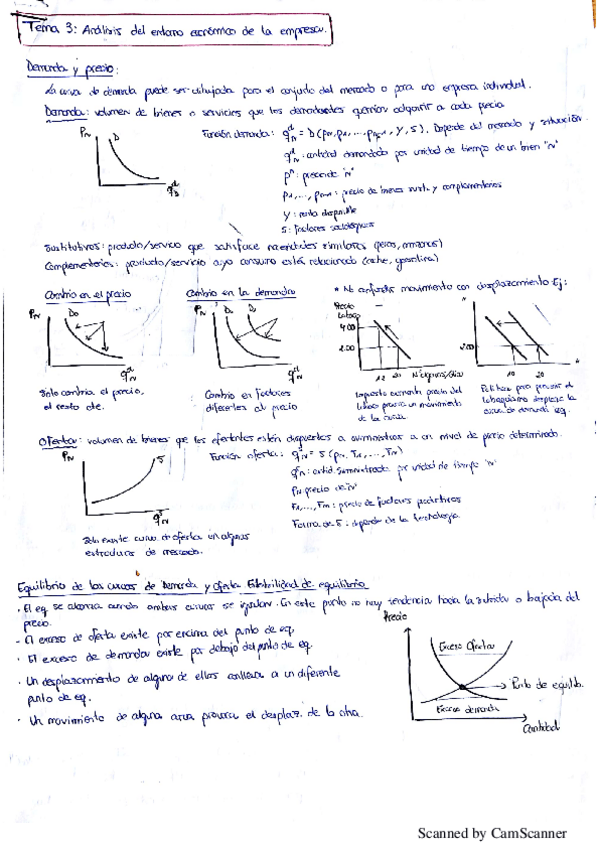 Tema 3: Análisis del entorno económico de la empresa.
Demanda y precio:
La curva de demanda puede ser dibujada para el conjunto del mercado o para una empresa individual.
Demanda: volumen de bienes o servicios que los demandantes querrían adquirir a cada precio
PN
D
Función demanda: qdN = D(PN, P1, ... PN-1, Y, S). Depende del mercado y situación.
qdN: cantidad demandada por unidad de tiempo de un bien "N"
PN: precio de "N"
P1, ..., PN-1: precio de bienes sustit. y complementarios
Y: renta disponible
S: factores sociológicos
Sustitutivos: producto/servicio que satisface necesidades similares (peras, manzanas)
Complementarios: producto/servicio cuyo consumo está relacionado (coche, gasolina)
Cambio en el precio
Cambio en la demanda
* No confundir movimiento con desplazamiento Ej:
PN
D0
qdN
Solo cambia el precio,
el resto cte.
PN
qdN
Cambio en factores
diferentes al precio
Precio
tabaco
4.00
2.00
12
20
Nº cigarros/día
Impuesto aumenta precio del
tabaco provoca un movimiento
de la curva
2.00
10
20
tabaquismo desplaza la
curva de demanda izq.
Oferta: volumen de bienes que los ofertantes están dispuestos a suministrar a un nivel de precio determinado.
PN
S
Función oferta: qsN = S(PN, F1, ..., Fm)
qsN: cantid. suministrada por unidad de tiempo "N"
PN precio de "N"
F1, ..., Fm: precio de factores productivos
Forma de S: depende de la tecnología.
Solo existe curva de oferta en algunas
estructuras de mercado.
Equilibrio de las curvas de Demanda y Oferta Estabilidad de equilibrio
· El eq. se alcanza cuando ambas curvas se igualan. En este punto no hay tendencia hacia la subida o bajada del
precio.
- El exceso de oferta existe por encima del punto de eq.
· El exceso de demanda existe por debajo del punto de eq.
· Un desplazamiento de alguna de ellas conlleva a un diferente
punto de eq.
· Un movimiento de alguna curva provoca el desplaz. de la otra.
Precio
Exceso oferta
Punto de equilib.
Exceso demanda
Cantidad
Scanned by CamScanner